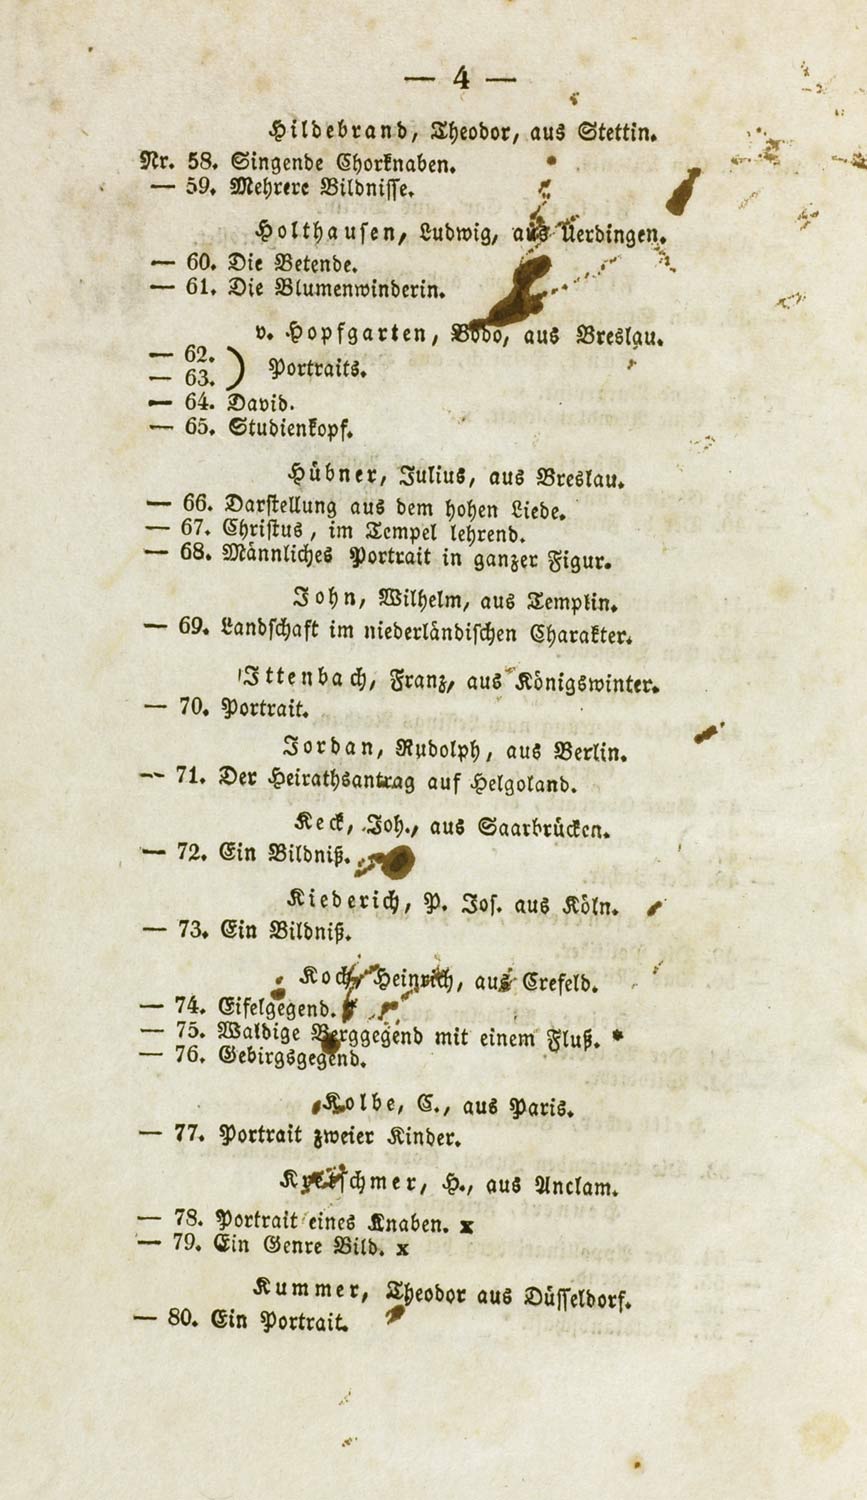 — 4 —
Hildebrand, Theodor, aus Stettin.
Nr. 58. Singende Chorknaben.
— 59. Mehrere Bildnisse.
Holthausen, Ludwig, aus Uerdingen.
— 60. Die Betende.
— 61. Die Blumenwinderin.
v. Hopfgarten, Bodo, aus Breslau.
— 62.
— 63. ) Portraits.
— 64. David.
— 65. Studienkopf.
Hübner, Julius, aus Breslau.
— 66. Darstellung aus dem hohen Liede.
— 67. Christus, im Tempel lehrend.
— 68. Männliches Portrait in ganzer Figur.
John, Wilhelm, aus Templin.
— 69. Landschaft im niederländischen Charakter.
Ittenbach, Franz, aus Königswinter.
— 70. Portrait.
Jordan, Rudolph, aus Berlin.
— 71. Der Heirathsantrag auf Helgoland.
Keck, Joh., aus Saarbrücken.
— 72. Ein Bildniß.
Kiederich, P. Jos. aus Köln.
— 73. Ein Bildniß.
Koch, Heinrich, aus Crefeld.
— 74. Eifelgegend.
— 75. Waldige Berggegend mit einem Fluß. *
— 76. Gebirgsgegend.
Kolbe, C., aus Paris.
— 77. Portrait zweier Kinder.
Kretschmer, H., aus Anclam.
— 78. Portrait eines Knaben. x
— 79. Ein Genre Bild. x
Kummer, Theodor aus Düsseldorf.
— 80. Ein Portrait.